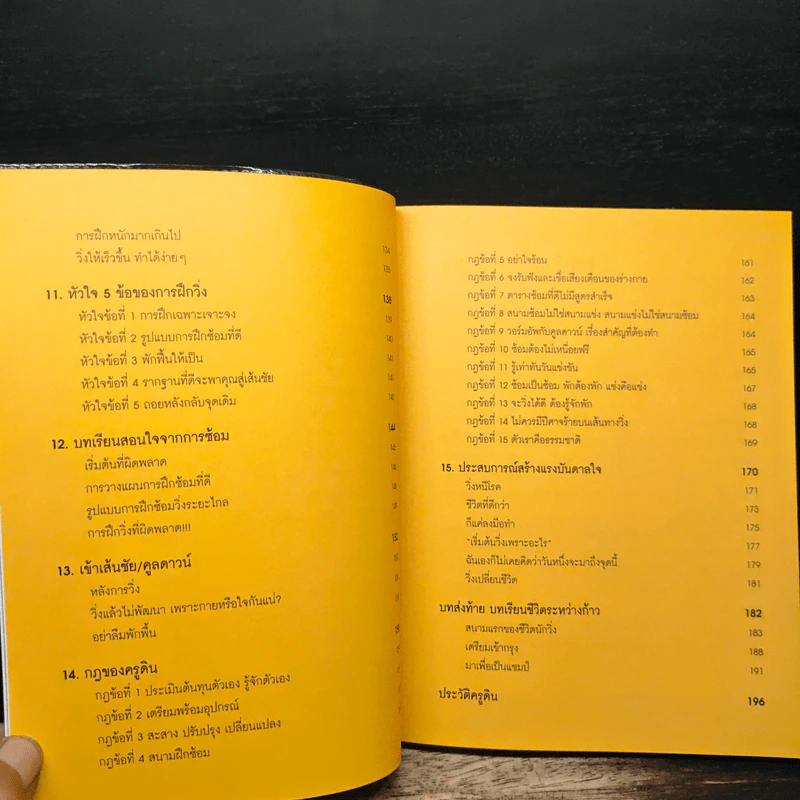 การฝึกหนักมากเกินไป 134
วิ่งให้เร็วขึ้น ทำได้ง่ายๆ 135
11. หัวใจ 5 ข้อของการฝึกวิ่ง 138
หัวใจข้อที่ 1 การฝึกเฉพาะเจาะจง 139
หัวใจข้อที่ 2 รูปแบบการฝึกซ้อมที่ดี 140
หัวใจข้อที่ 3 พักฟื้นให้เป็น 141
หัวใจข้อที่ 4 รากฐานที่ดีจะพาคุณสู่เส้นชัย
หัวใจข้อที่ 5 ถอยหลังกลับจุดเดิม
12. บทเรียนสอนใจจากการซ้อม 144
เริ่มต้นที่ผิดพลาด
การวางแผนการฝึกซ้อมที่ดี
รูปแบบการฝึกซ้อมวิ่งระยะไกล
การฝึกวิ่งที่ผิดพลาด!!!
13. เข้าเส้นชัย/คูลดาวน์
หลังการวิ่ง
วิ่งแล้วไม่พัฒนา เพราะกายหรือใจกันแน่?
อย่าลืมพักฟื้น
14. กฎของครูดิน
กฎข้อที่ 1 ประเมินต้นทุนตัวเอง รู้จักตัวเอง
กฎข้อที่ 2 เตรียมพร้อมอุปกรณ์
กฎข้อที่ 3 สะสาง ปรับปรุง เปลี่ยนแปลง
กฎข้อที่ 4 สนามฝึกซ้อม
กฎข้อที่ 5 อย่าใจร้อน 161
กฎข้อที่ 6 จงรับฟังและเชื่อเสียงเตือนของร่างกาย 162
กฎข้อที่ 7 ตารางซ้อมที่ดีไม่มีสูตรสำเร็จ 163
กฎข้อที่ 8 สนามซ้อมไม่ใช่สนามแข่ง สนามแข่งไม่ใช่สนามซ้อม 164
กฎข้อที่ 9 วอร์มอัพกับคูลดาวน์ เรื่องสำคัญที่ต้องทำ 164
กฎข้อที่ 10 ซ้อมต้องไม่เหนื่อยฟรี 165
กฎข้อที่ 11 รู้เท่าทันวันแข่งขัน 165
กฎข้อที่ 12 ซ้อมเป็นซ้อม พักต้องพัก แข่งคือแข่ง 167
กฎข้อที่ 13 จะวิ่งได้ดี ต้องรู้จักพัก 168
กฎข้อที่ 14 ไม่ควรมีปีศาจร้ายบนเส้นทางวิ่ง 168
กฎข้อที่ 15 ตัวเราคือธรรมชาติ 169
15. ประสบการณ์สร้างแรงบันดาลใจ 170
วิ่งหนีโรค 171
ชีวิตที่ดีกว่า 173
ก็แค่ลงมือทำ 175
"เริ่มต้นวิ่งเพราะอะไร" 177
ฉันเองก็ไม่เคยคิดว่าวันหนึ่งจะมาถึงจุดนี้ 179
วิ่งเปลี่ยนชีวิต 181
บทส่งท้าย บทเรียนชีวิตระหว่างก้าว 182
สนามแรกของชีวิตนักวิ่ง 183
เตรียมเข้ากรุง 188
มาเพื่อเป็นแชมป์ 191
ประวัติครูดิน 196